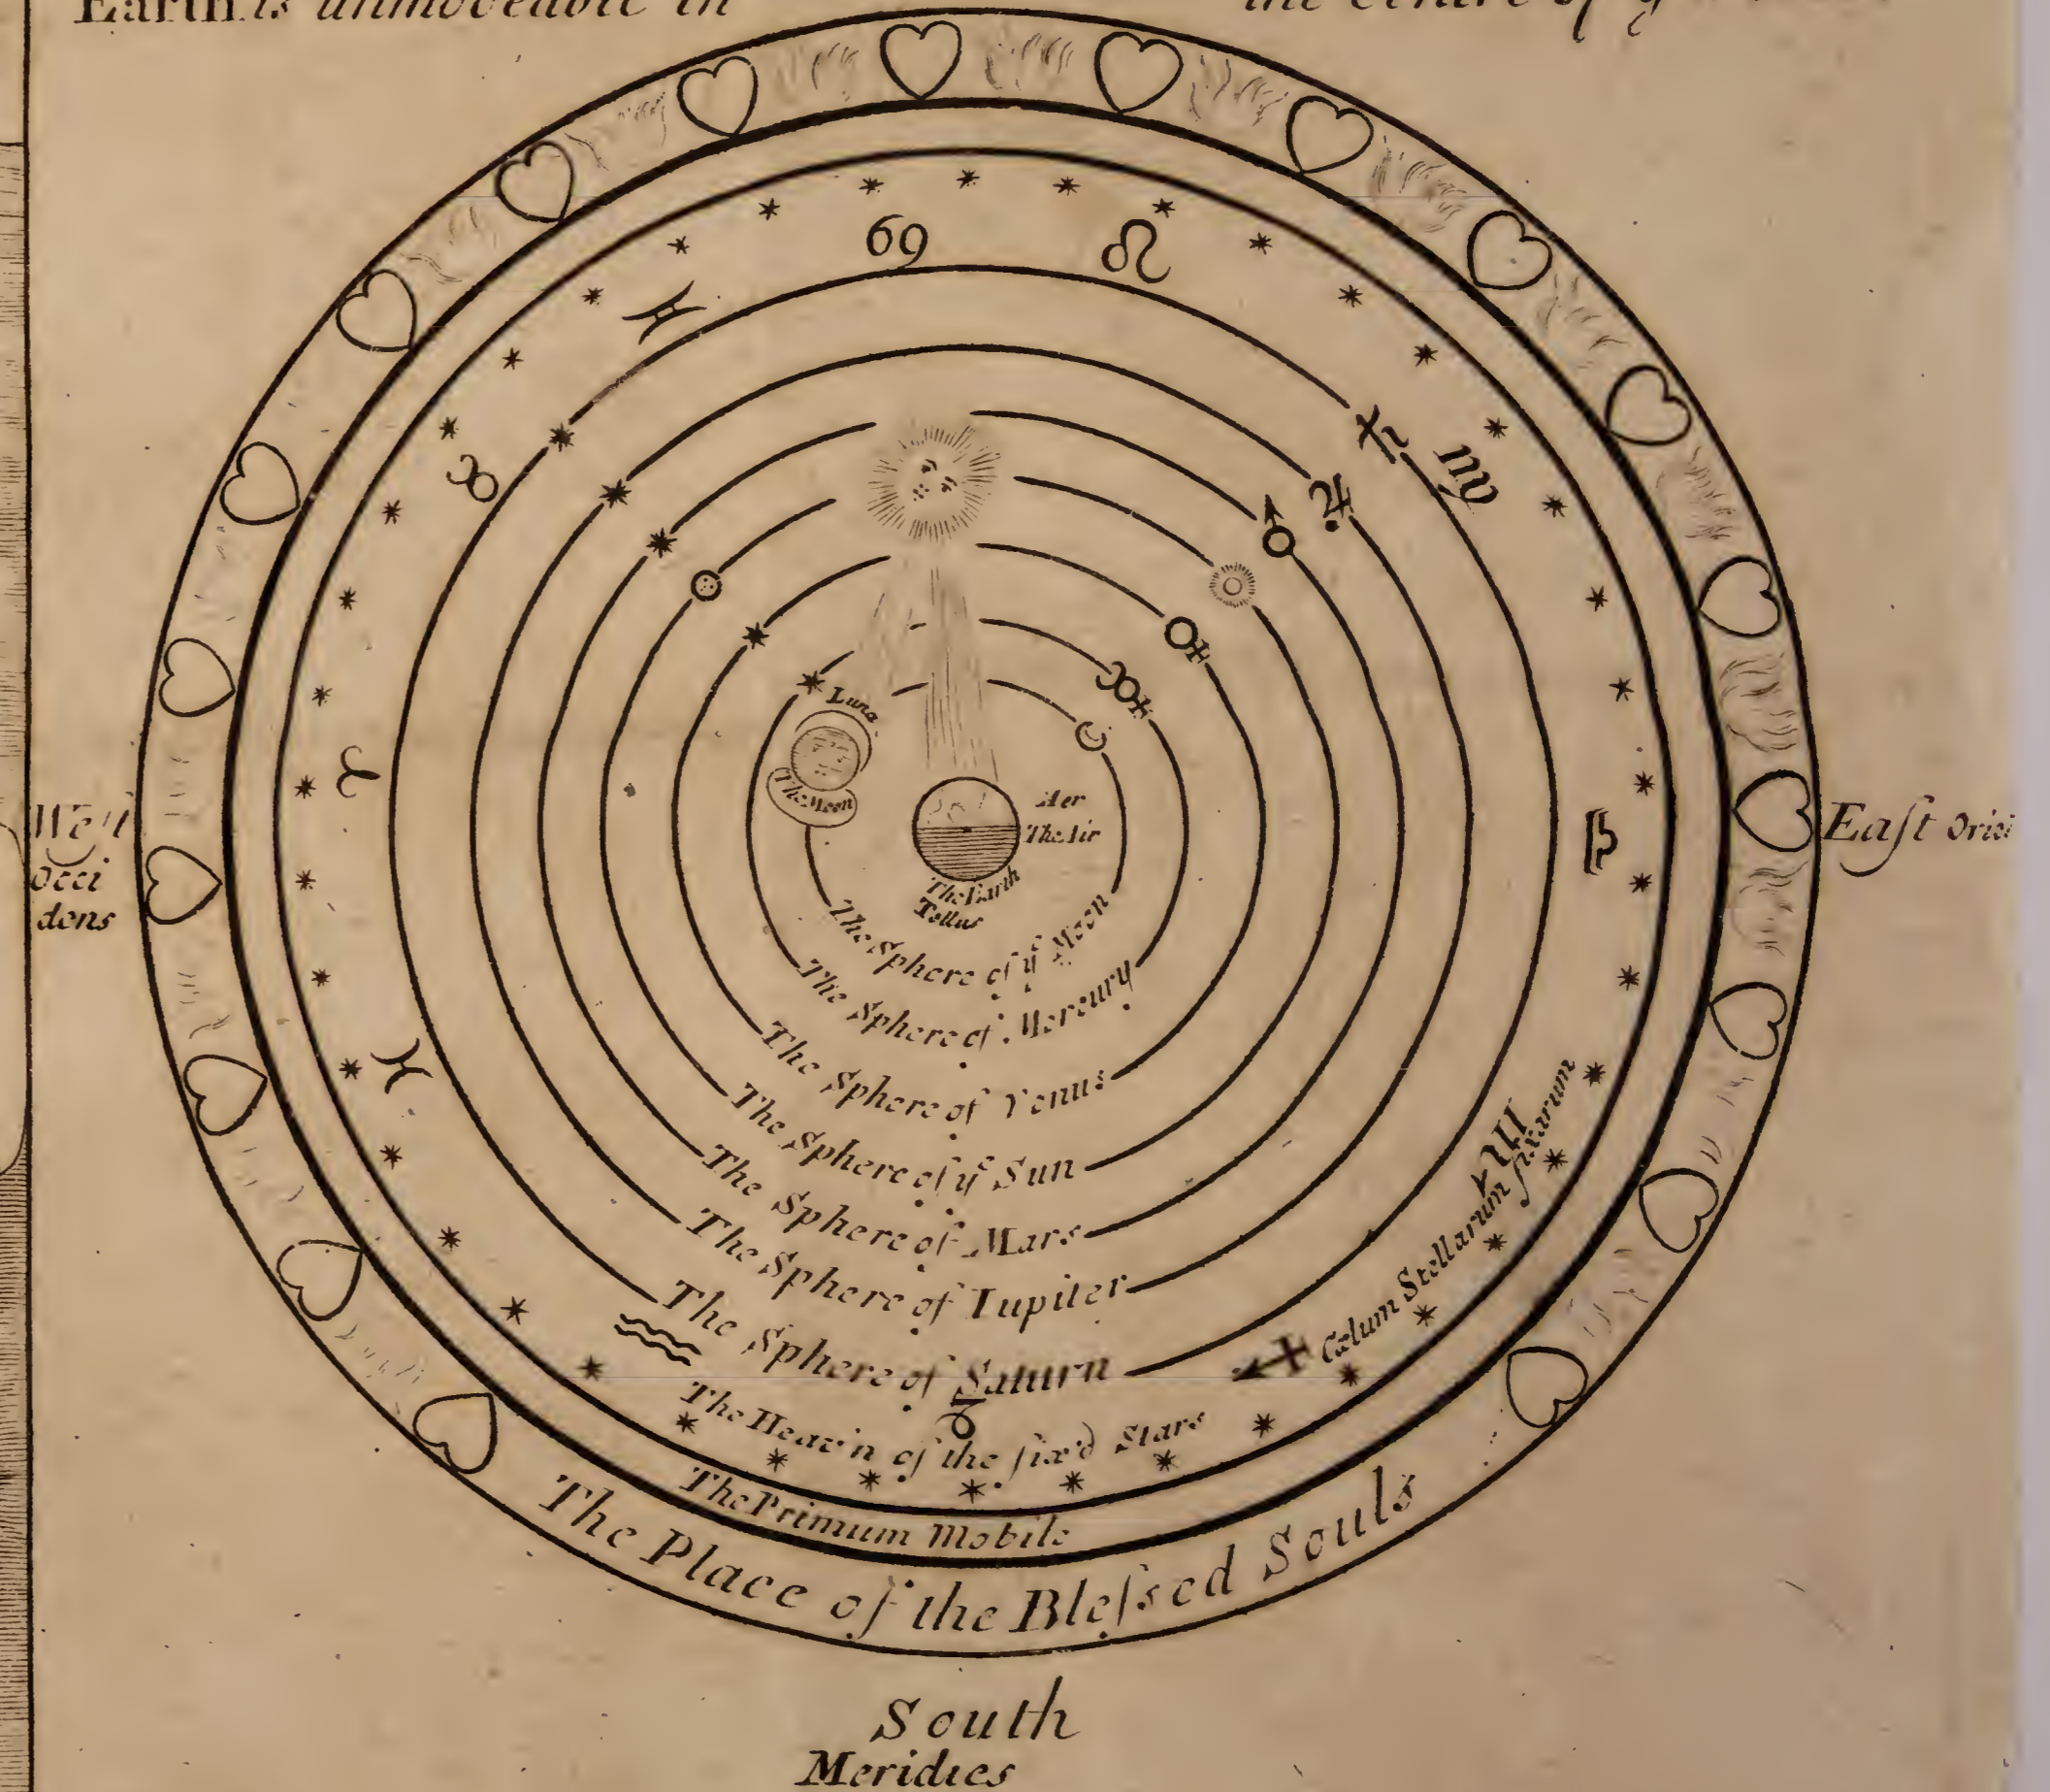 Earth is unmoveable in the centre of yͤ
Luna
The Moon
Aer
The Air
The Earth
Tellus
West
Occi
dens
East Orie
The Sphere of yͤ Moon
The Sphere of Mercury
The Sphere of Venus
The Sphere of yͤ Sun
The Sphere of Mars
The Sphere of Iupiter
The Sphere of Saturn
The Heav'n of the fix'd Stars
Cælum Stellarum fixarum
The Primum Mobile
The Place of the Bleſsed Souls
South
Meridies